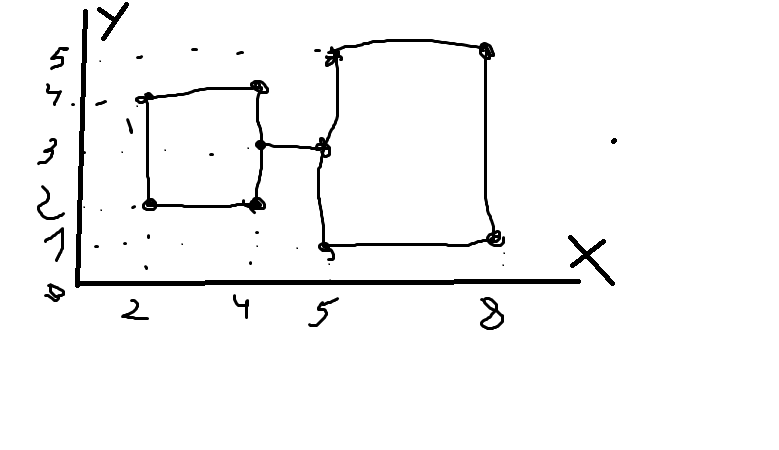 Y
5
4
3
2
1
0
2 4 5 8
X